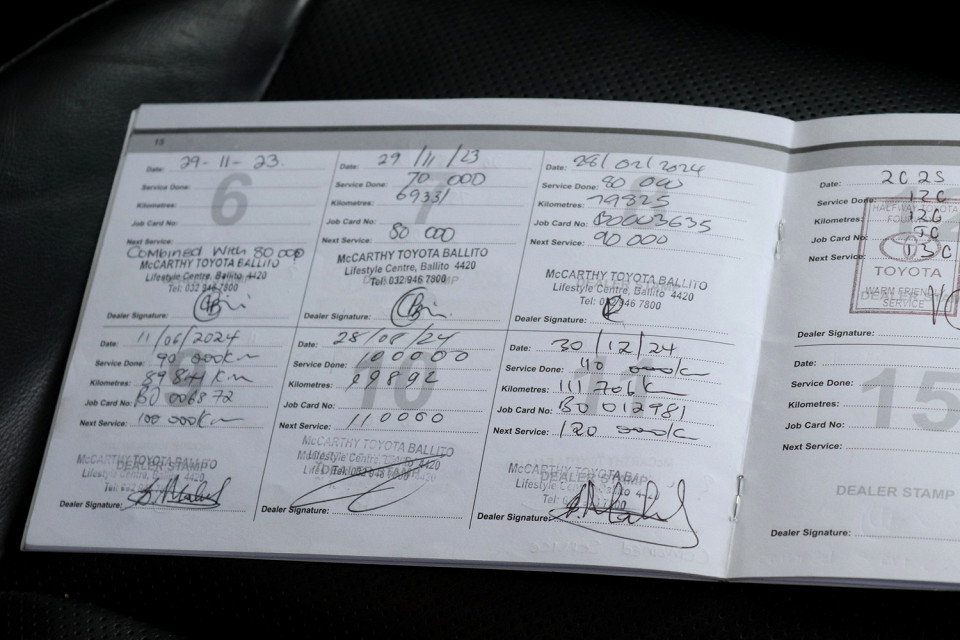 15
6
Date: 29-11-23.
Service Done:
Kilometres:
Job Card No:
Next Service:
Combined With 80 000
McCARTHY TOYOTA BALLITO
Lifestyle Centre, Ballito 4420
Tel: 032 946 7800
Dealer Signature:
7
Date: 29/11/23
Service Done: 70 000
Kilometres: 69331
Job Card No:
Next Service: 80 000
McCARTHY TOYOTA BALLITO
Lifestyle Centre, Ballito 4420
Tel: 032 946 7800
Dealer Signature:
Date: 28/02/2024
Service Done: 80 000
Kilometres: 79825
Job Card No: B0003635
Next Service: 90 000
McCARTHY TOYOTA BALLITO
Lifestyle Centre, Ballito 4420
Tel: 032 946 7800
Dealer Signature:
Date: 11/06/2024
Service Done: 90 000km
Kilometres: 89844km
Job Card No: B0 006872
Next Service: 100 000km
McCARTHY TOYOTA BALLITO
DEALER STAMP
Lifestyle Centre, Ballito 4420
Dealer Signature:
10
Date: 28/08/24
Service Done: 100000
Kilometres: 99892
Job Card No:
Next Service: 110000
McCARTHY TOYOTA BALLITO
Lifestyle Centre, Ballito 4420
DEALER STAMP
Dealer Signature:
11
Date: 30/12/24
Service Done: 110 000k
Kilometres: 111 706k
Job Card No: B0 012981
Next Service: 120 000k
McCARTHY TOYOTA BAL
DEALER STAMP
Dealer Signature:
Date: 2025
Service Done: 120
Kilometres: 120
Job Card No:
Next Service: 130
HALFWAY TOYOTA
FOURWAYS
TOYOTA
WARM FRIENDLY
SERVICE
Dealer Signature:
15
Date:
Service Done:
Kilometres:
Job Card No:
Next Service:
DEALER STAMP
Dealer Signature: